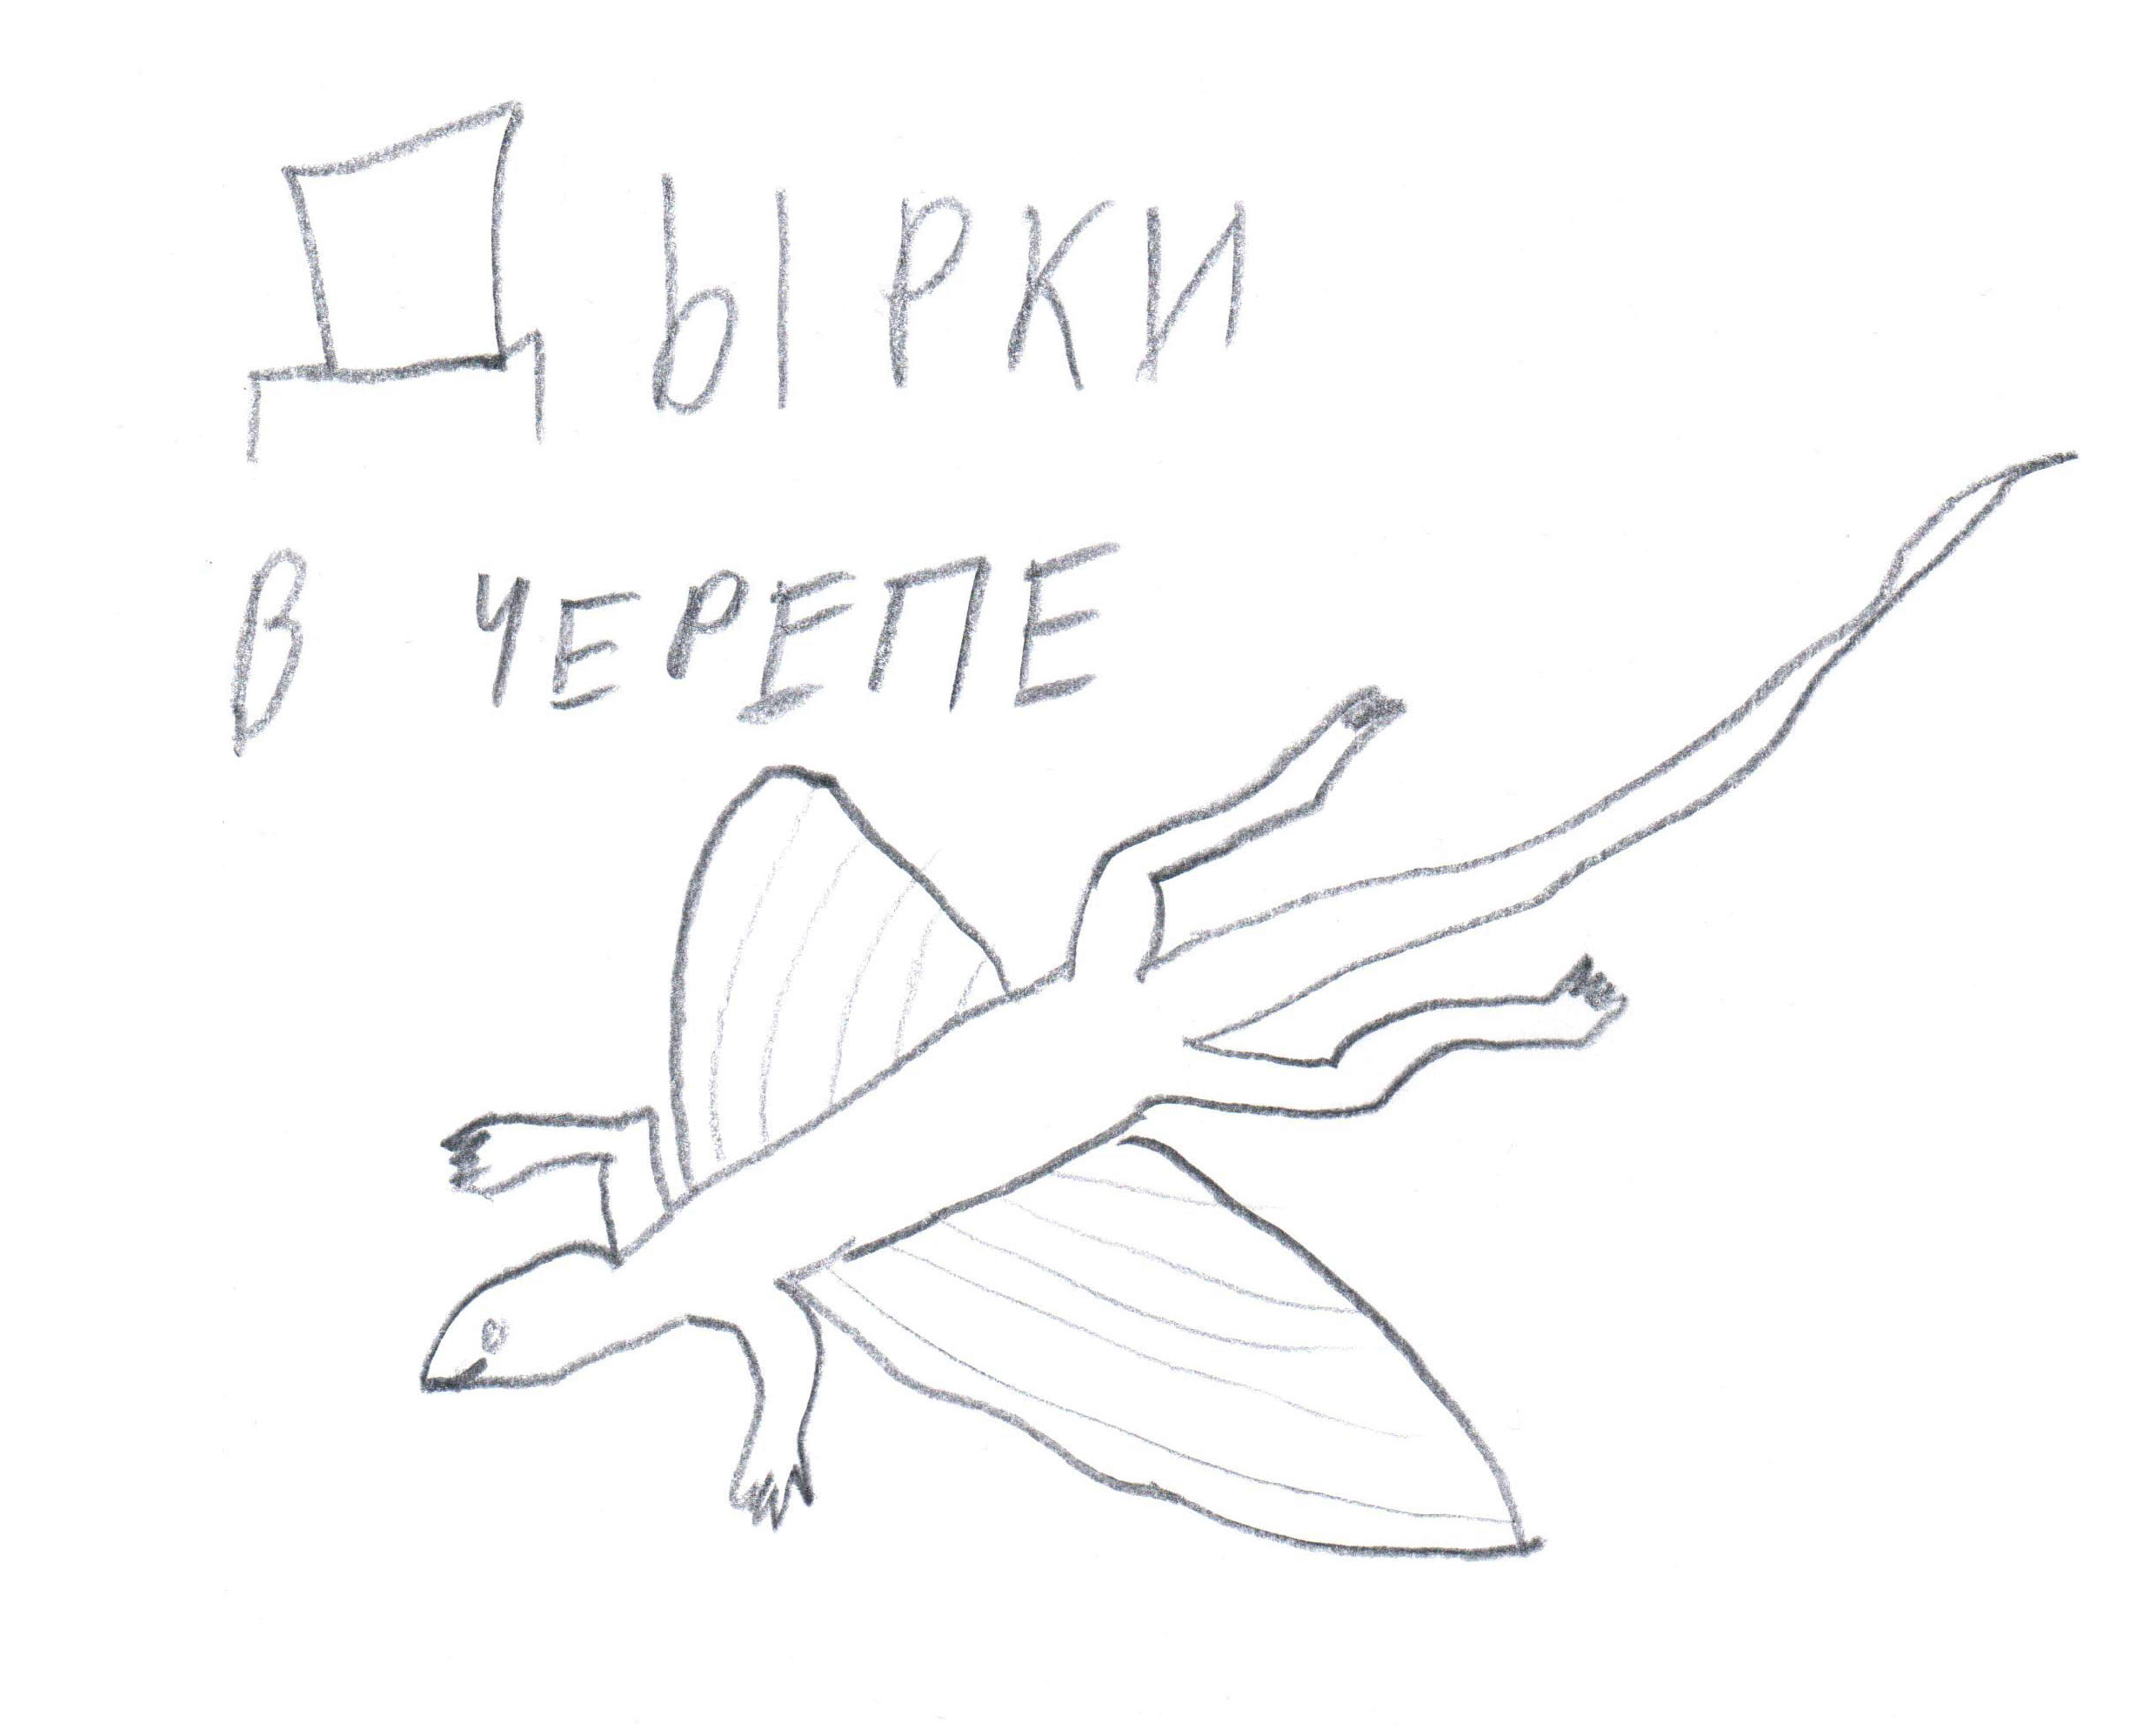 ДЫРКИ
В ЧЕРЕПЕ